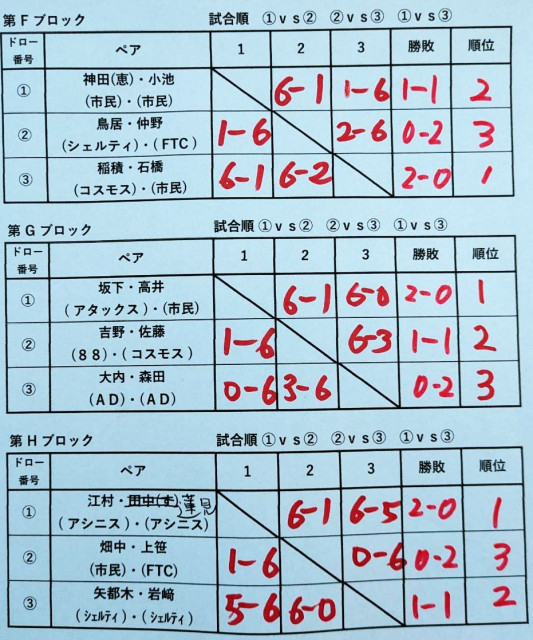 第Fブロック 試合順 ①vs② ②vs③ ①vs③
ドロー番号 ペア 1 2 3 勝敗 順位
① 神田(恵)・小池 6-1 1-6 1-1 2
(市民)・(市民)
② 鳥居・仲野 1-6 2-6 0-2 3
(シェルティ)・(FTC)
③ 稲積・石橋 6-1 6-2 2-0 1
(コスモス)・(市民)
第Gブロック 試合順 ①vs② ②vs③ ①vs③
ドロー番号 ペア 1 2 3 勝敗 順位
① 坂下・高井 6-1 6-0 2-0 1
(アタックス)・(市民)
② 吉野・佐藤 1-6 6-3 1-1 2
(88)・(コスモス)
③ 大内・森田 0-6 3-6 0-2 3
(AD)・(AD)
第Hブロック 試合順 ①vs② ②vs③ ①vs③
ドロー番号 ペア 1 2 3 勝敗 順位
① 江村・田中(す) 蓮見 6-1 6-5 2-0 1
(アシニス)・(アシニス)
② 畑中・上笹 1-6 0-6 0-2 3
(市民)・(FTC)
③ 矢都木・岩﨑 5-6 6-0 1-1 2
(シェルティ)・(シェルティ)